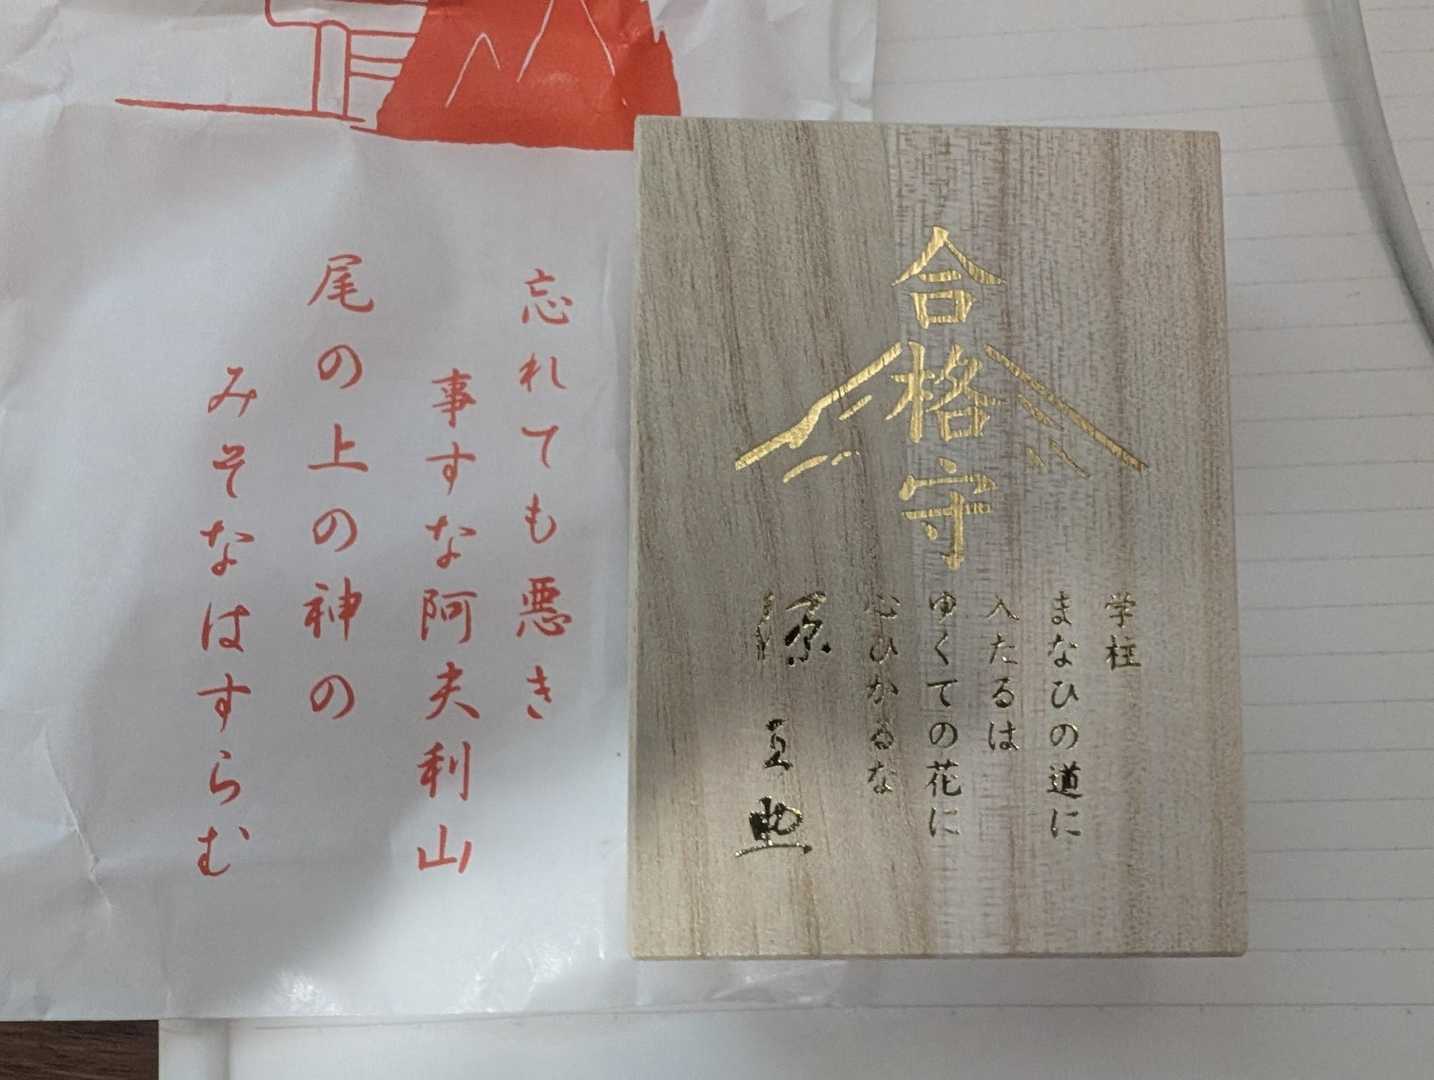 忘れても悪き
事すな阿夫利山
尾の上の神の
みそなはすらむ
合格守
学柱
まなひの道に
入たるは
ゆくての花に
心ひかるな